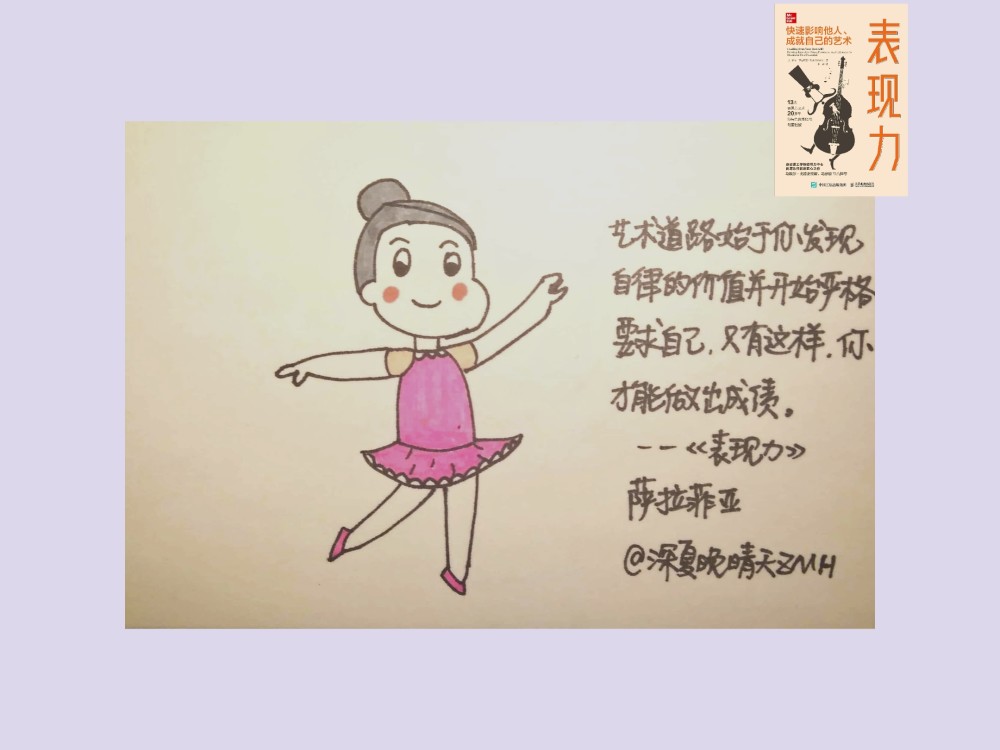 快速影响他人、
成就自己的艺术
表现力
艺术道路始于你发现
自律的价值并开始严格
要求自己,只有这样,你
才能做出成绩。
--《表现力》
萨拉菲亚
@深夏晚晴天ZMH